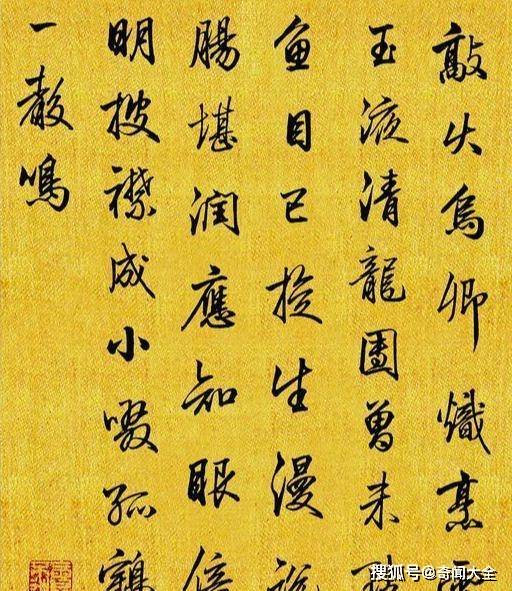 敲火烏卿熾烹
玉液清龍團曾未
魚目已生漫説
腸堪潤應知眼倍
明披襟成小啜孤鶴
一聲鳴
搜狐号@奇闻大全